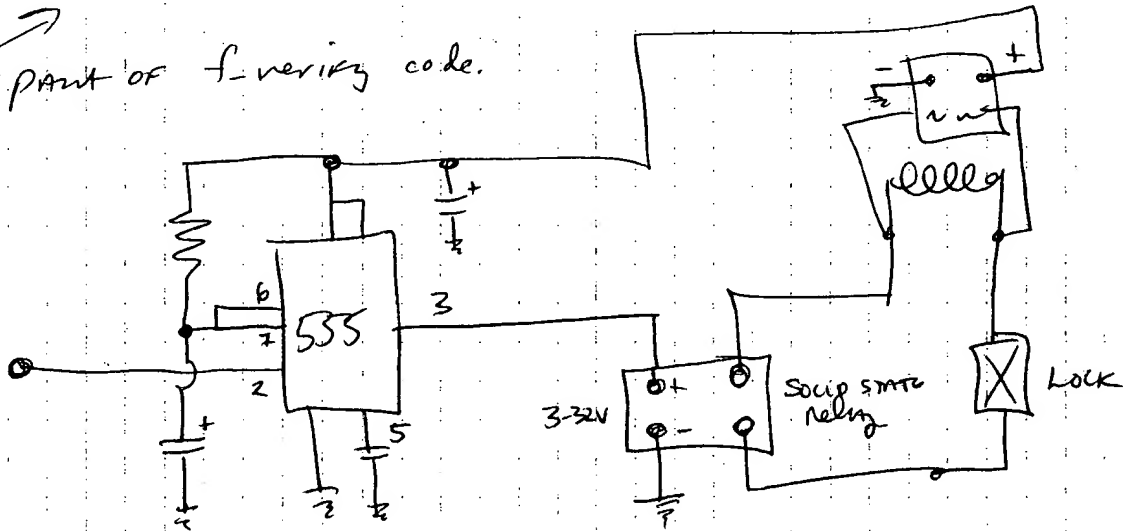 PART OF code.
- +
+
6
7
555
3
2
5
+
+
-
3-32V
SOLID STATE
relay
LOCK